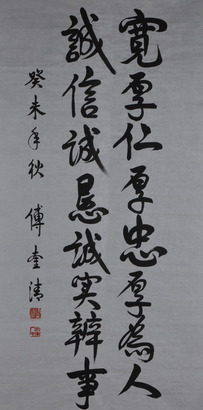 寬厚仁厚忠厚為人
誠信誠恳誠实辦事
癸未年秋 傅奎清